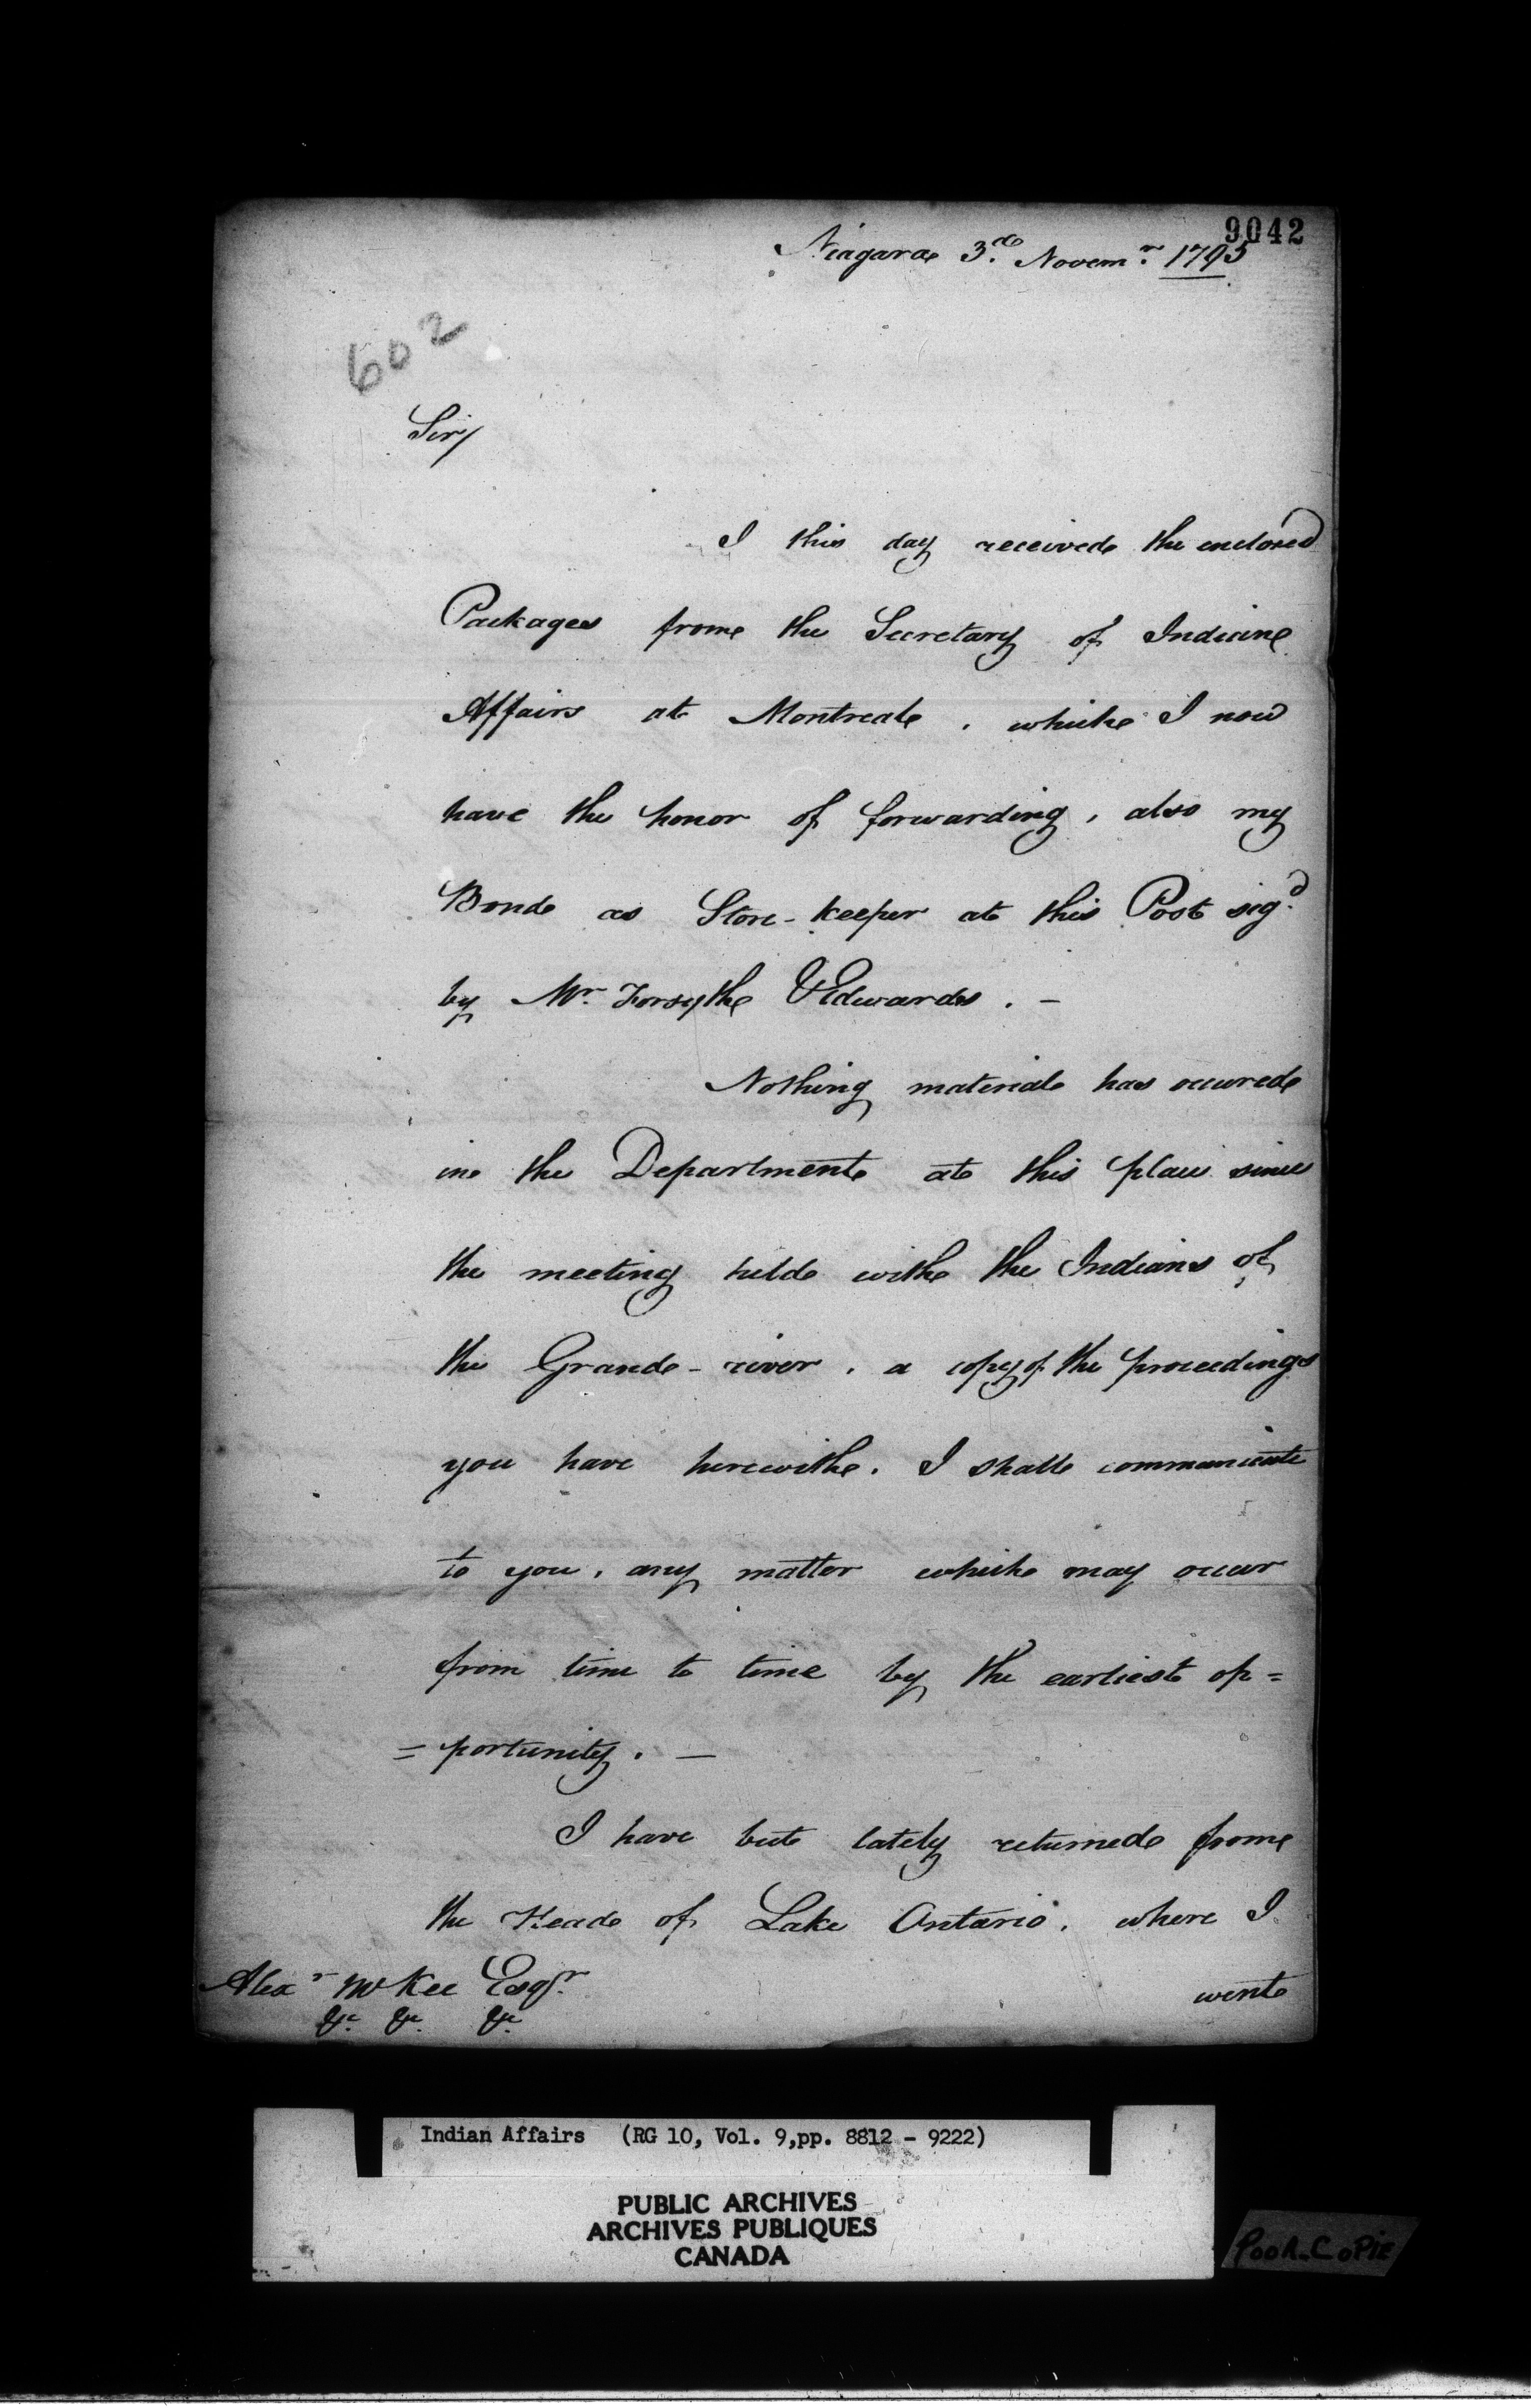 9042
Niagara 3.d Novem.r 1795
602
Sir/
I this day received the enclosed
Packages from the Secretary of Indian
Affairs at Montreal, which I now
have the honor of forwarding, also my
Bond as Store-keeper at this Post sig.d
by Mr. Forsyth & Edwards. -
Nothing material has occured
in the Department at this place since
the meeting held with the Indians of
the Grand-river, a copy of the proceedings
you have herewith. I shall communicate
to you, any matter which may occur
from time to time by the earliest op=
=portunity. -
I have but lately returned from
the Head of Lake Ontario, where I
went
Alexr McKee Esqr.
&c. &c. &c.
Indian Affairs (RG 10, Vol. 9, pp. 8812 - 9222)
PUBLIC ARCHIVES
ARCHIVES PUBLIQUES
CANADA
POOR-COPIE